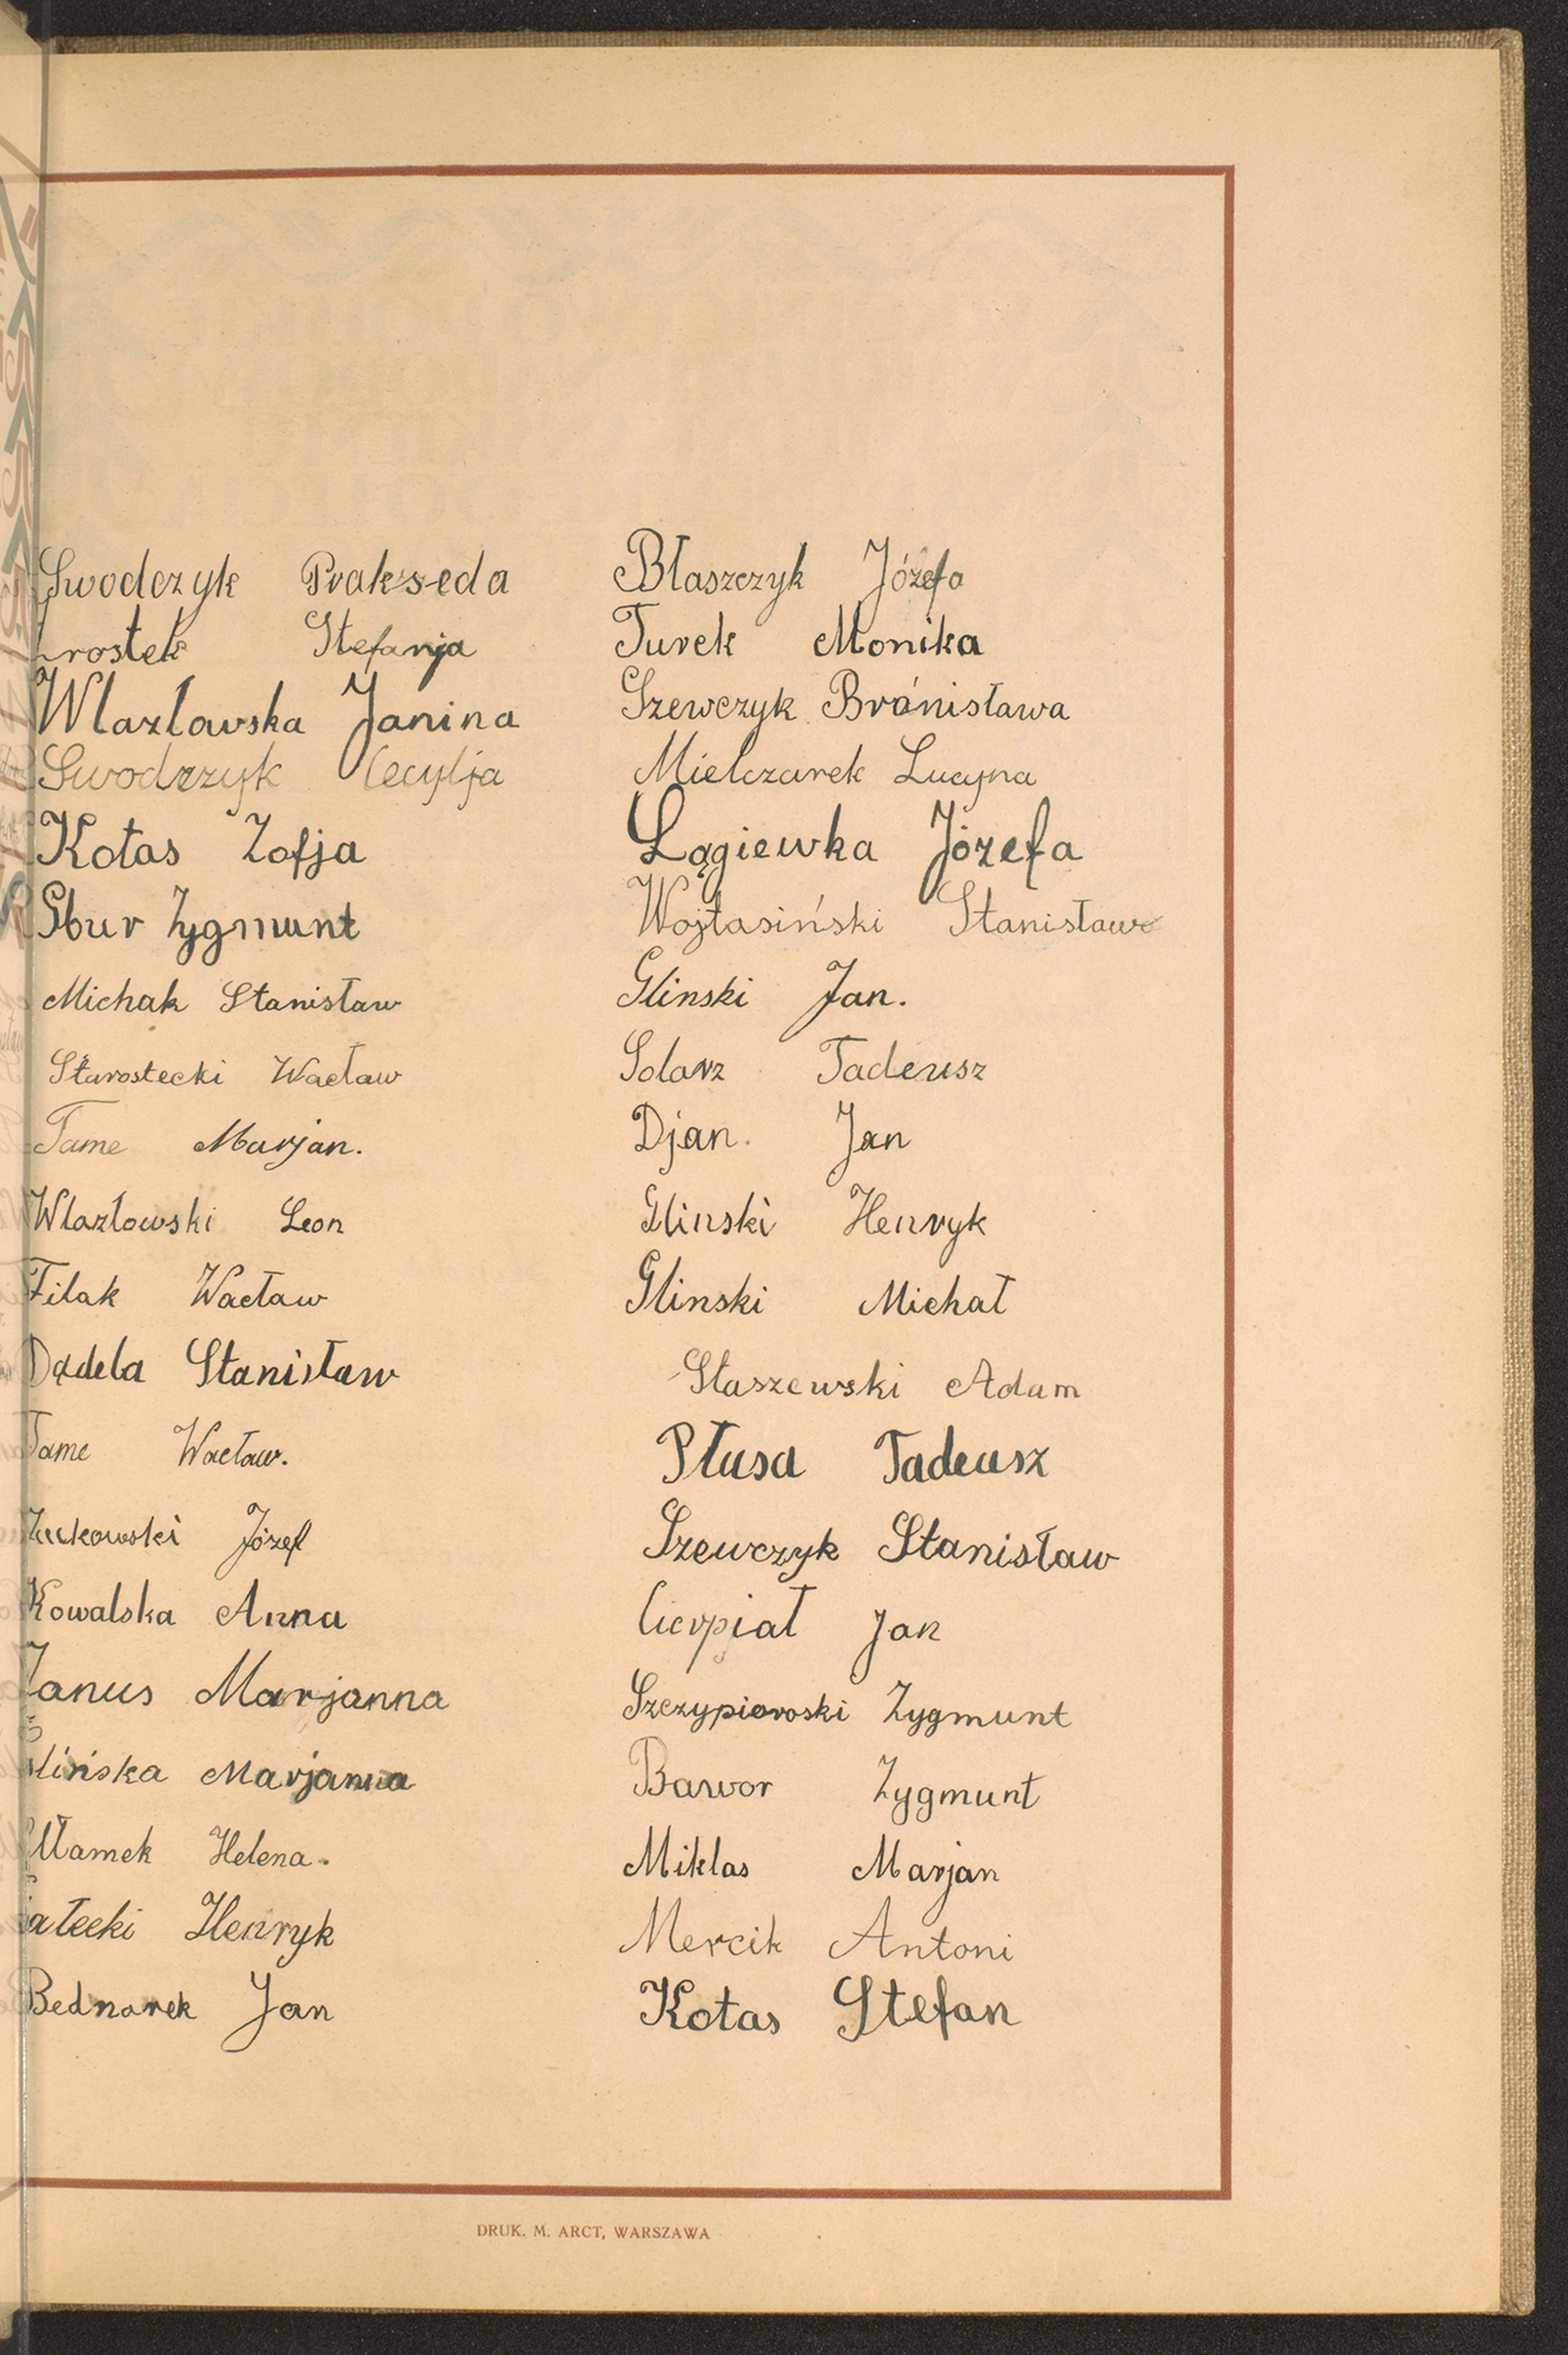 Swodczyk Prakseda
rostek Stefanja
Wlazlowska Janina
Swodczyk Cecylja
Kotas Zofja
Gbur Zygmunt
Michak Stanisław
Starostecki Wacław
Tame Marjan.
Wlazłowski Leon
Filak Wacław
Dądela Stanisław
Tame Wacław.
Żuckowski Józef
Kowalska Anna
Janus Marjanna
Glińska Marjanna
Ułamek Helena.
ałecki Henryk
Bednarek Jan
Błaszczyk Józefa
Turek Monika
Szewczyk Bronisława
Mielczarek Lucyna
Łągiewka Józefa
Wojtasiński Stanisław
Glinski Jan.
Solarz Tadeusz
Djan. Jan
Glinski Henryk
Glinski Michał
Staszewski Adam
Płusa Tadeusz
Szewczyk Stanisław
Cierpiał Jan
Szczypioroski Zygmunt
Bawor Zygmunt
Miklas Marjan
Mercik Antoni
Kotas Stefan
DRUK. M. ARCT, WARSZAWA